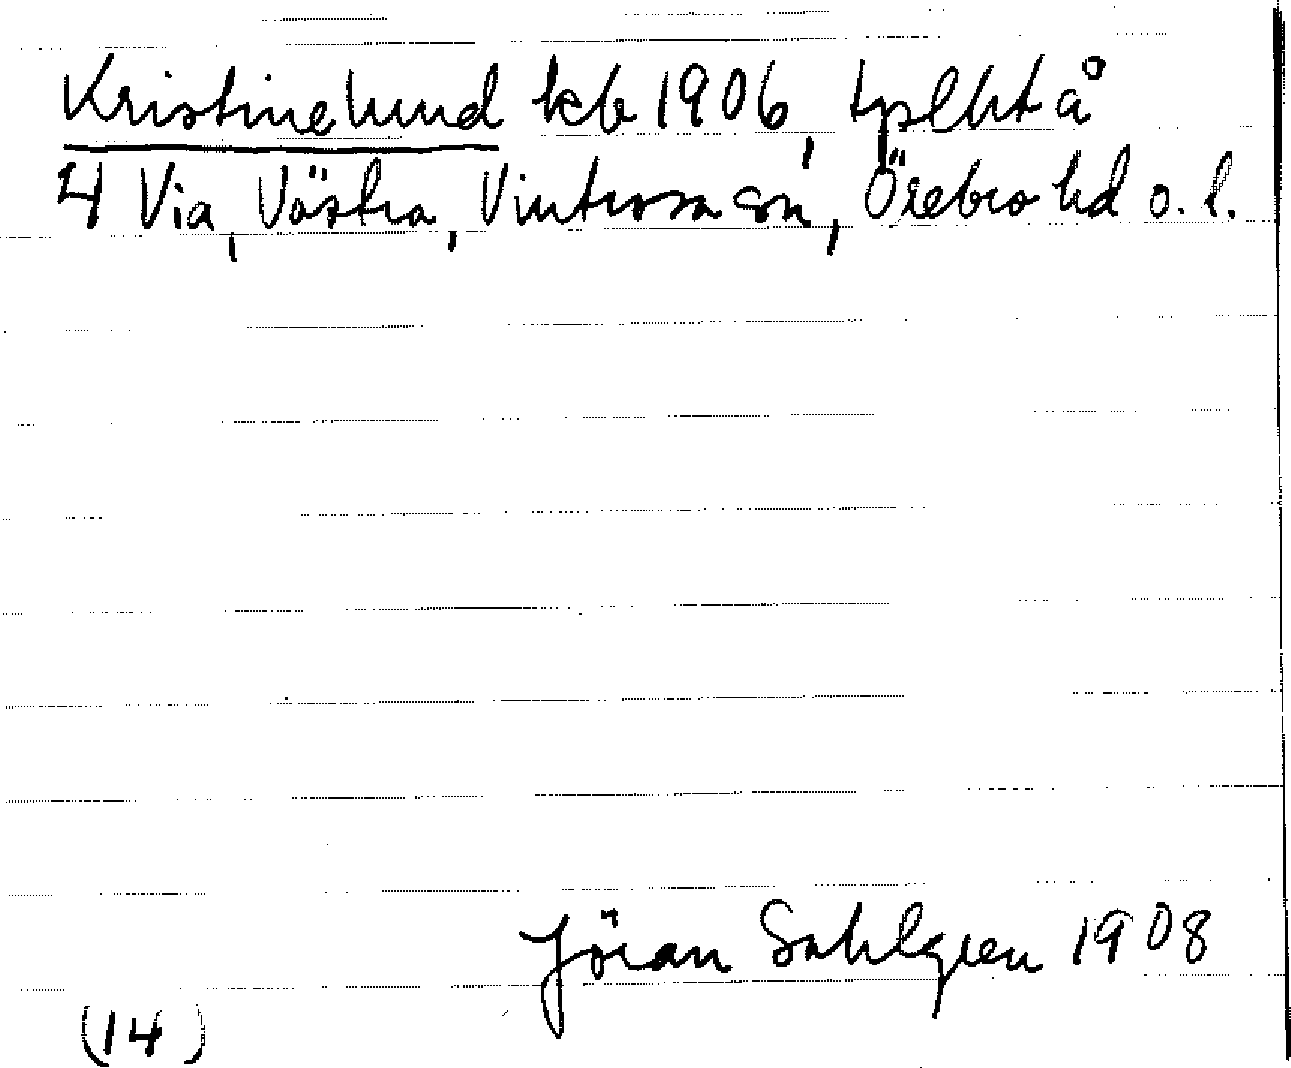 Kristinelund kb 1906, tplht å
4 Via, Västra, Vintrosa sn, Örebro hd o. l.
Jöran Sahlgren 1908
(14)